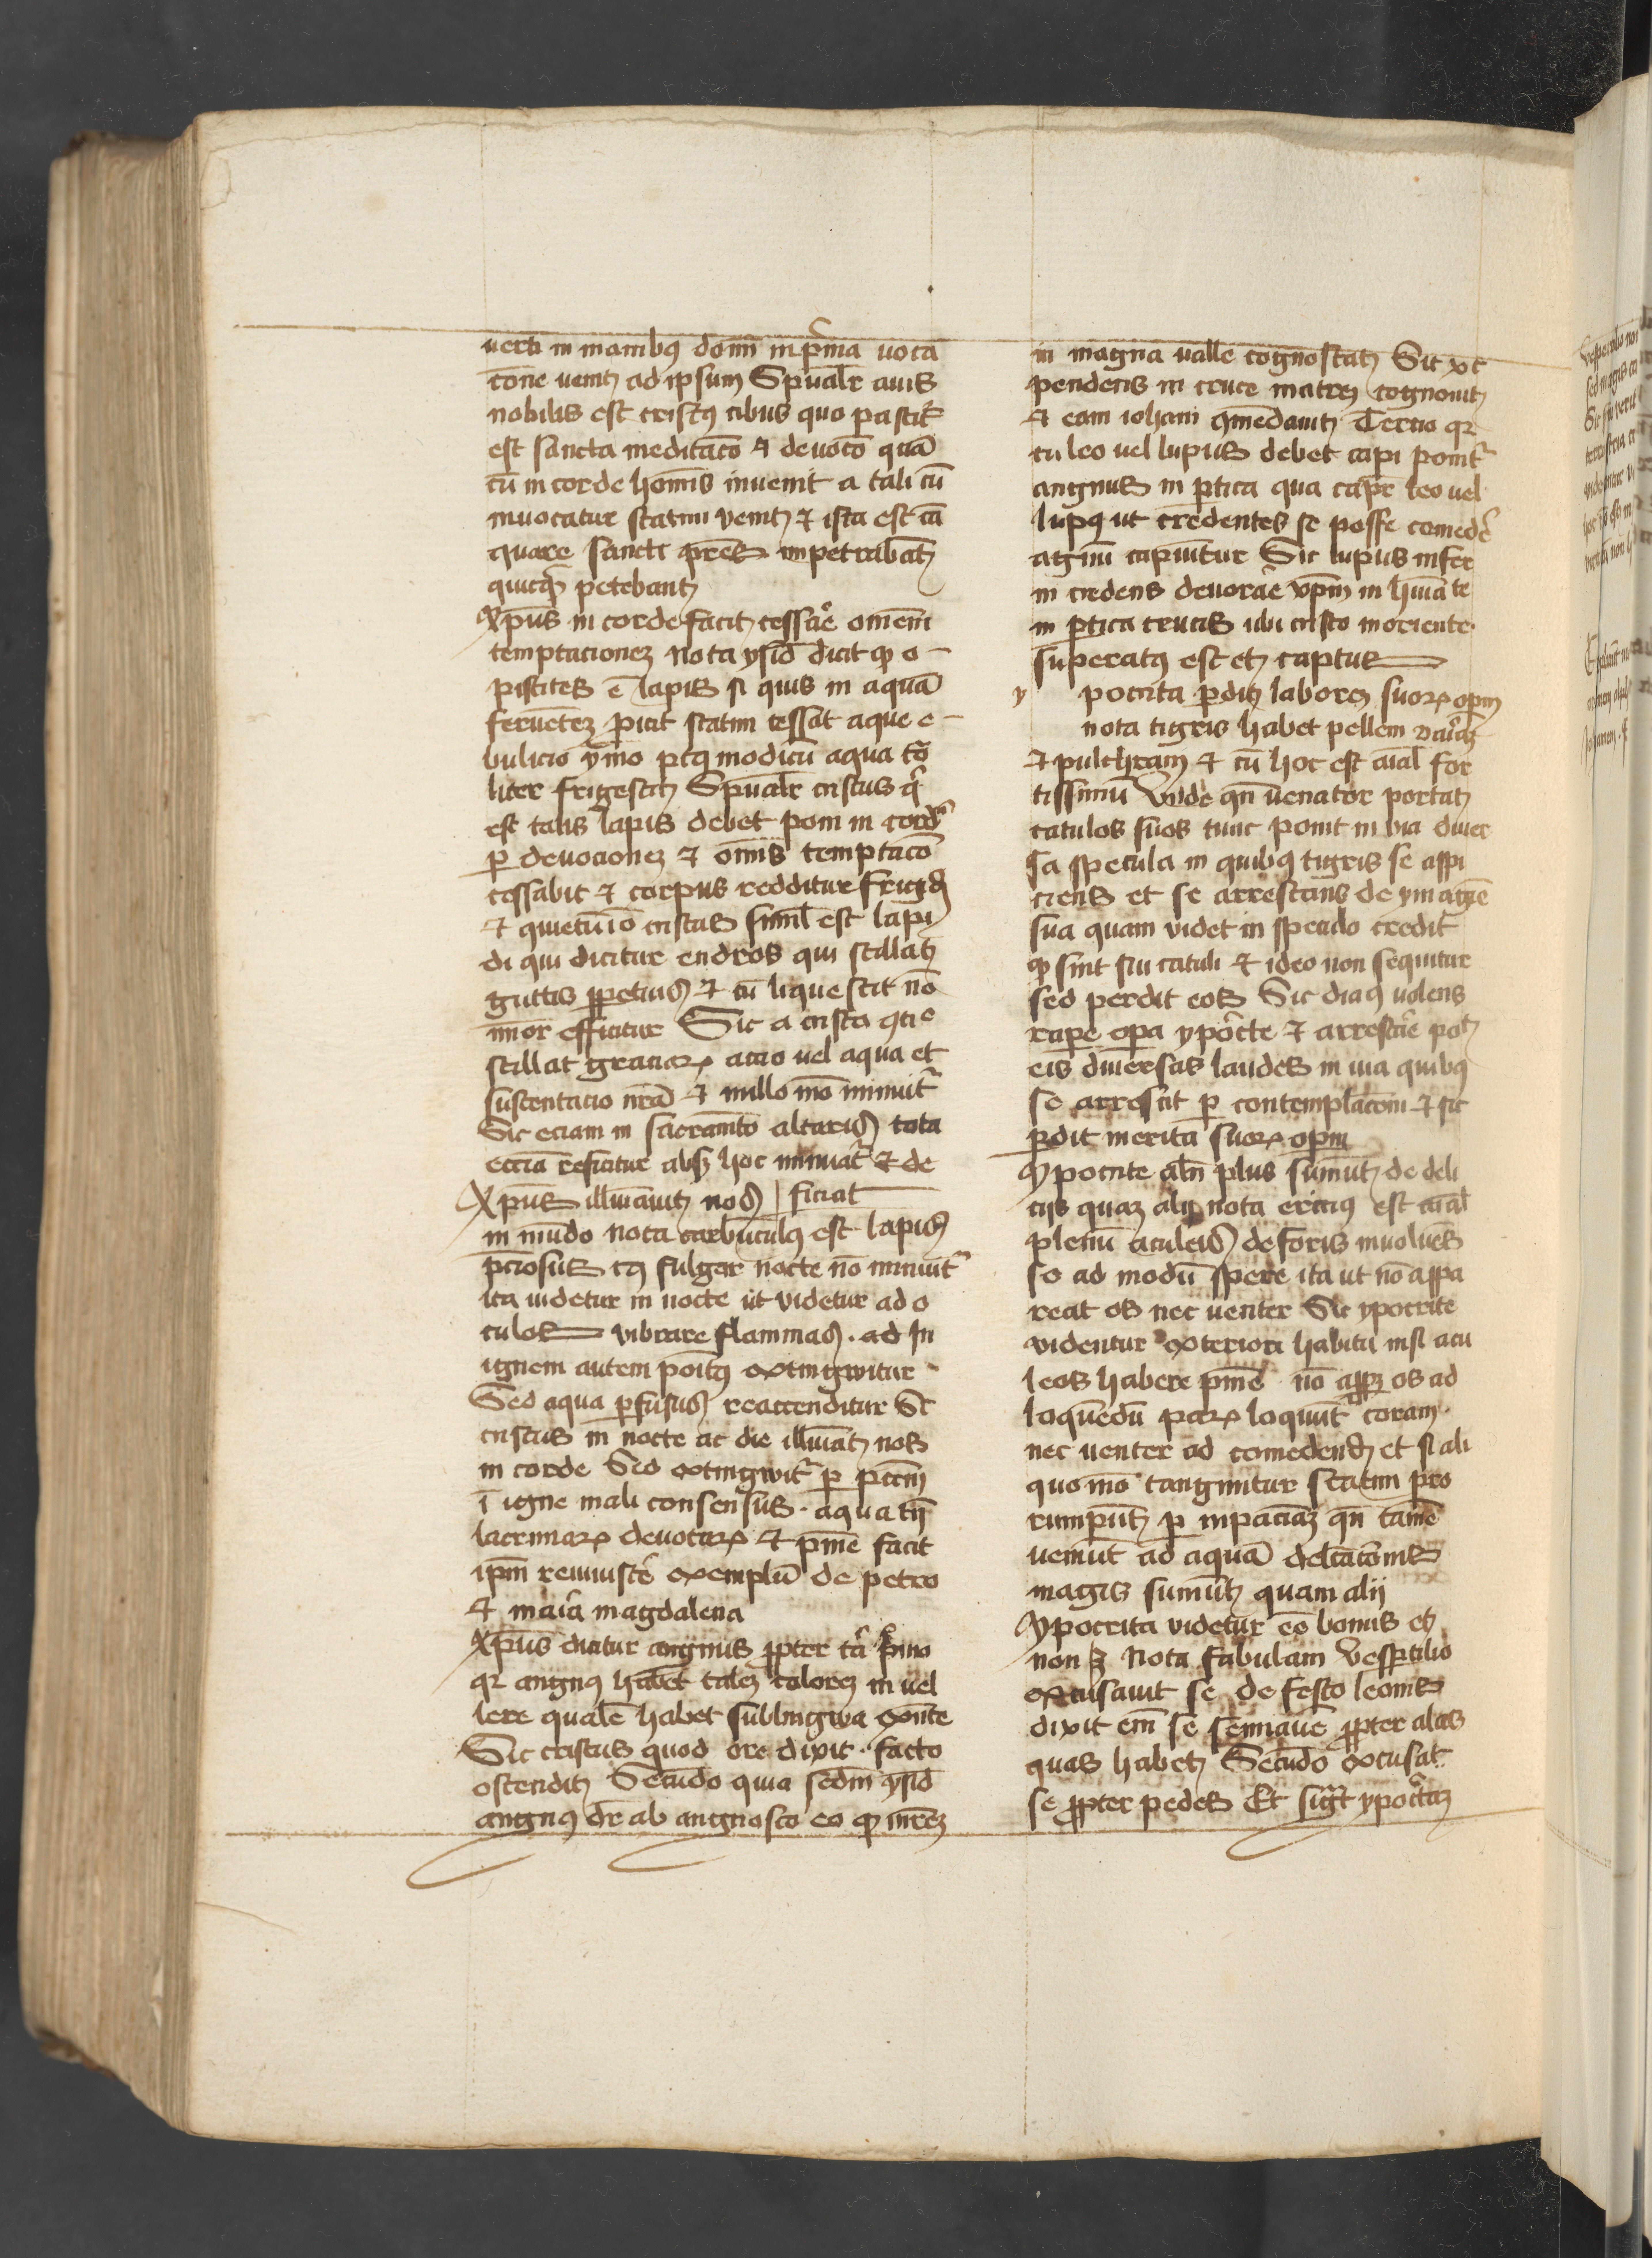 uerti in manibꝯ domī in pͥma uoca
cōne uenitꝫ ad ipsum Spūalr̄ auis
nobilis est cristꝯ cibus quo pascitͬ
est sancta meditacō ⁊ deuocō quā
cū in corde hom̄is inuenit a tali cū
inuocatur statim venitꝫ ⁊ ista est cā
quare sancti pr̄es impetrabātꝫ
quicqͥd petebantꝫ
Xp̄us in corde facitꝫ cessar̄e omnem
temptacionēꝫ nota ysid̄ dicit ꝙ o
pistites ē lapis si quis in aquā
feruētēꝫ ꝓicit statim cessat aque e
bulicio ymo pꝰtꝙ modicū aqua to
liter frigescitꝫ Spūalr̄ cristus qͥ
est talis lapis debet poni in cord̄
ꝑ deuocionēꝫ ⁊ omnis temptacō
cessabit ⁊ corpus redditur frigid̄
⁊ quietū iō cristus simīl est lapi
di qui dicitur endros qui stillatꝫ
guttis ꝑpetuis ⁊ cū liquescit nō
minor efficitur Sic a cristo ꝯtīe
stillat graciarꝫ accio uel aqua et
sustentacio nr̄a ⁊ nullo mō minuitͬ
Sic eciam in sacramēto altaris tota
eccīa reficitur absꝙ hoc minuatͬ ⁊ de
Xp̄us illuīauitꝫ nos | ficiat
in mūdo nota carbūculꝯ est lapis
p̄ciosus cꝯ fulgor nocte nō minuitͬ
ita uidetur in nocte ut videtur ad o
culos vibrare flammas . ad In
ignem autem poītꝯ extingwitur
Sed aqua ꝑfusus reaccenditur Sic
cristus in nocte ac die illuīatꝫ nos
in corde Sed extingwitͬ ꝑ pctm̄
ī igne mali consensus . aqua tn̄
lacrimarꝫ deuotarꝫ ⁊ pn̄ie facit
ipm̄ reuiuiscer̄e exemplū de petro
⁊ maria magdalena
Xp̄us dicitur angnus ꝓpter tria pͥmo
qꝛ angnꝯ habet talēꝫ colorēꝫ in uel
lere qualē habet sublingwa exn̄te
Sic cristus quod ore dixit . facto
ostenditꝫ Secūdo quia sedm̄ ysid̄
angnꝯ dr̄ ab angnosco eo ꝙ mr̄ēꝫ
in magna ualle cognoscatꝫ Sic xt
pendens in cruce matrēꝫ cognouitꝫ
⁊ eam iohani ꝯmēdauitꝫ Tercio qꝛ
cū leo uel lupus debet capi ponitͬ
angnus in ꝑtica qua capr̄ leo uel
lupꝯ ut credentes se posse comedēr̄
agnū capiuntur Sic lupus infer
ni credens deuorar̄e xp̄m in hūa te
in ꝑtica crucis ubi cristo moriente
superatꝯ est etꝫ captus
y pocrita ꝑditꝫ laborēꝫ suorꝫ opm̄
nota tigris habet pellem variāꝫ
⁊ pulchram ⁊ cū hoc est aīal for
tissimū Vnde qn̄ uenator portatꝫ
catulos suos tunc ponit in uia diuer
sa specula in quibꝯ tigris se aspi
ciens et se arrestans de ymagīe
sua quam videt in speculo credit
ꝙ sint sui catuli ⁊ ideo non sequitur
sed perdit eos Sic diaꝯ uolens
raꝑe oꝑa ypocrite ⁊ arrestar̄e poītꝫ
eis diuersas laudes in uia quibꝯ
se arrestat ꝑ contemplacōni ⁊ sic
ꝑdit merita suorꝫ opm̄
Ypocrite alīn plus sumūtꝫ de deli
ciis quaꝫ alij nota ericiꝯ est aīal
plenū aculeis de foris inuoluēs
se ad modū spere ita ut nō appa
reat os nec uenter Sic ypocrite
videntur exteriori habitu nisi acu
leos habere pn̄ie nō apparꝫ os ad
loquēdū parꝫ loquūtͬ coram
nec uenter ad comedend̄ et si ali
quo mō tanguntur statim pro
rumpūtꝫ ꝑ inpacīāꝫ qn̄ tamē
ueniūt ad aquā delectacōnis
magis sumūtꝫ quam alij
Ypocrita videtur eē bonus etꝫ
non ꝫ Nota fabulam vesꝑtilio
excusauit se de festo leonis
dixit em̄ se ꝓpter alas
quas habetꝫ Secūdo excusat
se ꝓpter pedes Et sigͬt ypoctāꝫ